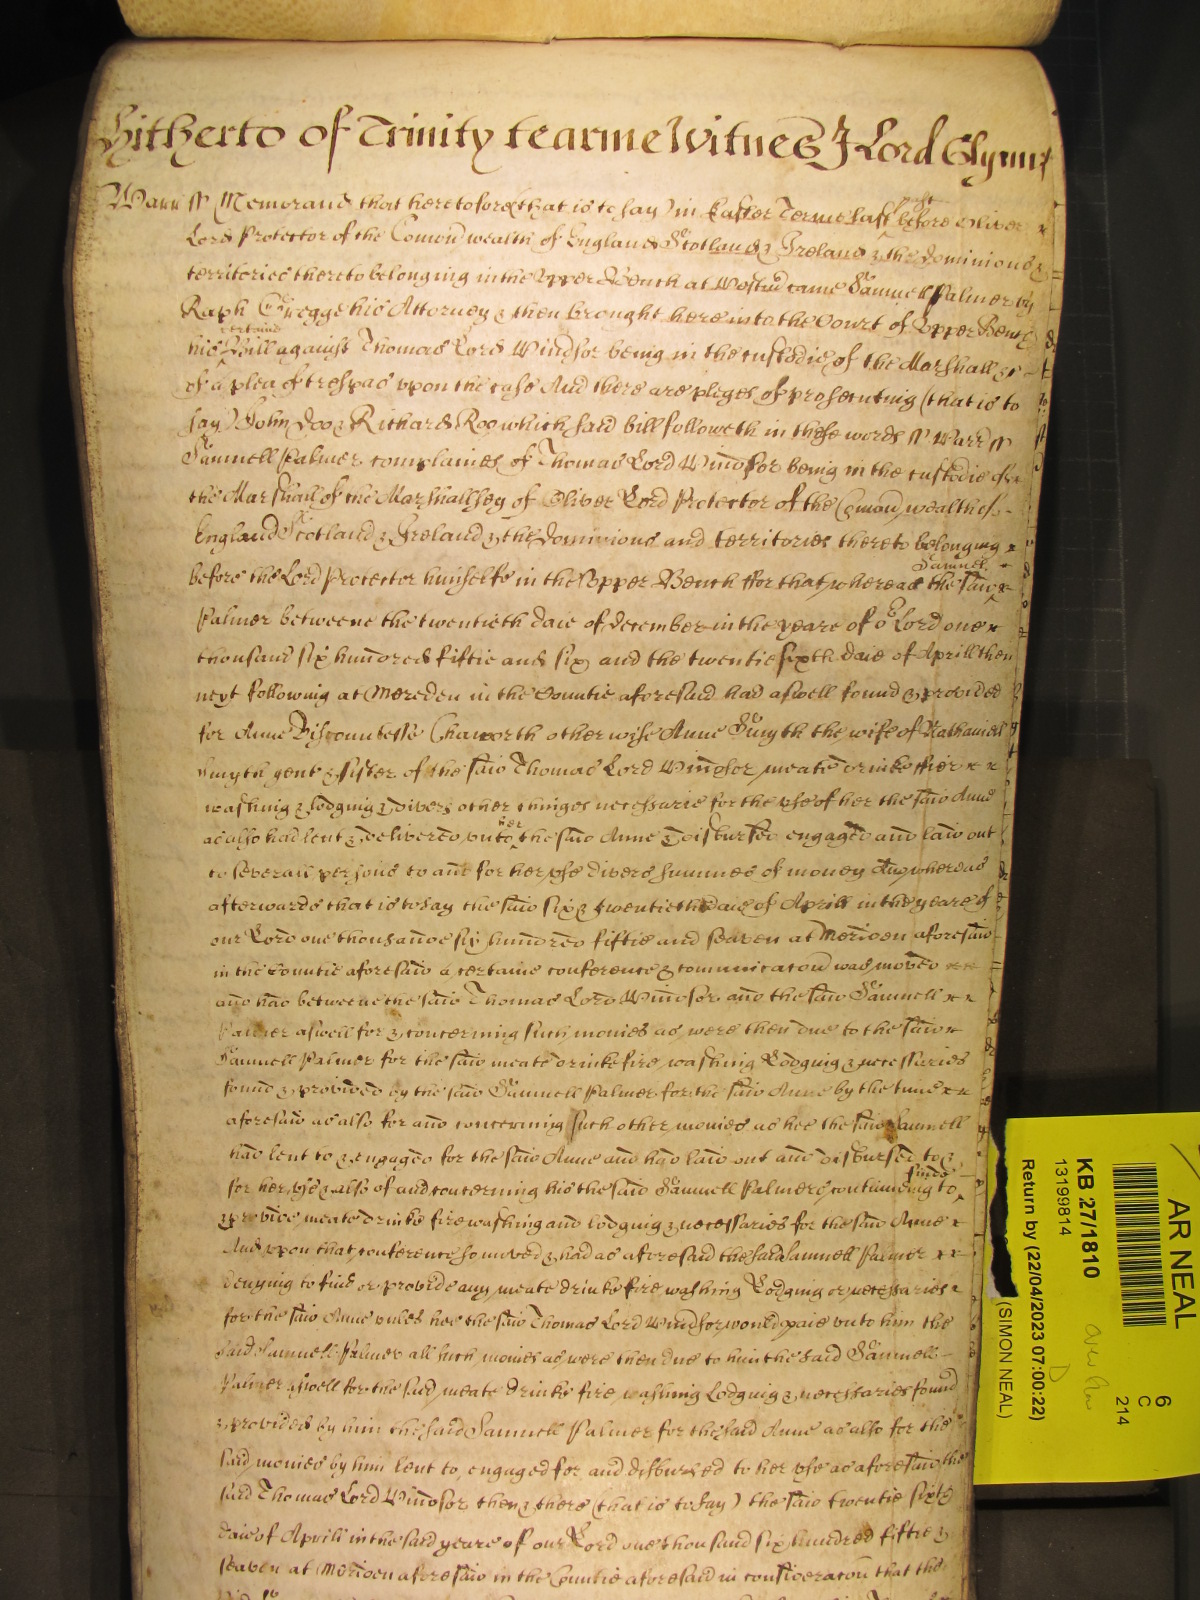 Hitherto of Trinity tearme Witnes J Lord Glynn
Warr ss Memorand that heretofore (that is to say) in Easter Terme last before Oliver
Lord Protector of the Comon wealth of England Scotland & Ireland & the dominions &
territories thereto belonging in the Upper Bench at Westm came Samuell Palmer by
Raph Gregge his Attorney & then brought here into the Court of Upper Bench
certaine
his Bill against Thomas Lord Windsor being in the custodie of the Marshall &c
of a plea of trespas upon the case And there are pleges of prosecuting (that is to
say) John Doo & Richard Roo which said bill followeth in these words ss Warr ss
Samuell Palmer complaines of Thomas Lord Windsor being in the custodie of
the Marshall of the Marshallsey of Oliver Lord Protector of the Comon wealth of
England Scotland & Ireland & the Dominions and territories thereto belonging
Samuel
before the Lord Protector himselfe in the Upper Bench ffor that whereas the said
Palmer betweene the twentieth daie of December in the yeare of or Lord one
thousand six hundred fiftie and six and the twentie sixth daie of Aprill then
next following at Mereden in the Countie aforesaid had aswell found & provided
for Anne Viscountesse Chaworth otherwise Anne Smyth the wife of Nathaniell
Smyth gent & sister of the said Thomas Lord Windsor meate drinke ffier
washing & lodging & divers other thinges necessarie for the use of her the said Anne
her
as also had lent & delivered unto the said Anne & disbursed engaged and laid out
to severall persons to and for her use divers summes of money And whereas
afterwards that is to say the said six & twentieth daie of Aprill in the yeare of
our Lord one thousand six hundred fiftie and seaven at Meriden aforesaid
in the Countie aforesaid a certaine conference & communicacon was moved
and had betweene the said Thomas Lord Windsor and the said Samuell
Palmer aswell for & concerning such monies as were then due to the said
Samuell Palmer for the said meate drinke fire washing Lodging & necessaries
found & provided by the said Samuell Palmer for the said Anne by the time
aforesaid as also for and concerning such other monies as hee the said Samuell
had lent to & engaged for the said Anne and had laid out and disbursed to &
for her use & also of and concerning his the said Samuell Palmers continuing to
finde
& provide meate drinke fire washing and lodging & necessaries for the said Anne
And upon that conference so moved & had as aforesaid the said Samuell Palmer
denying to find or provide any meate drinke fire washing Lodging or necessaries
for the said Anne unles hee the said Thomas Lord Windsor would paie unto him the
said Samuell Palmer all such monies as were then due to him the said Samuell
Palmer aswell for the said meate drinke fire washing Lodging & necessaries found
& provided by him the said Samuell Palmer for the said Anne as also for the
said monies by him lent to engaged for and disbursed to her use as aforesaid the
said Thomas Lord Windsor then & there (that is to say) the said twentie sixth
daie of Aprill in the said yeare of our Lord one thousand six hundred fiftie &
seaven at Meriden aforesaid in the Countie aforesaid in consideracon that the
AR NEAL
6
C
214
KB 27/1810
13199814
Return by (22/04/2023 07:00:22)
(SIMON NEAL)